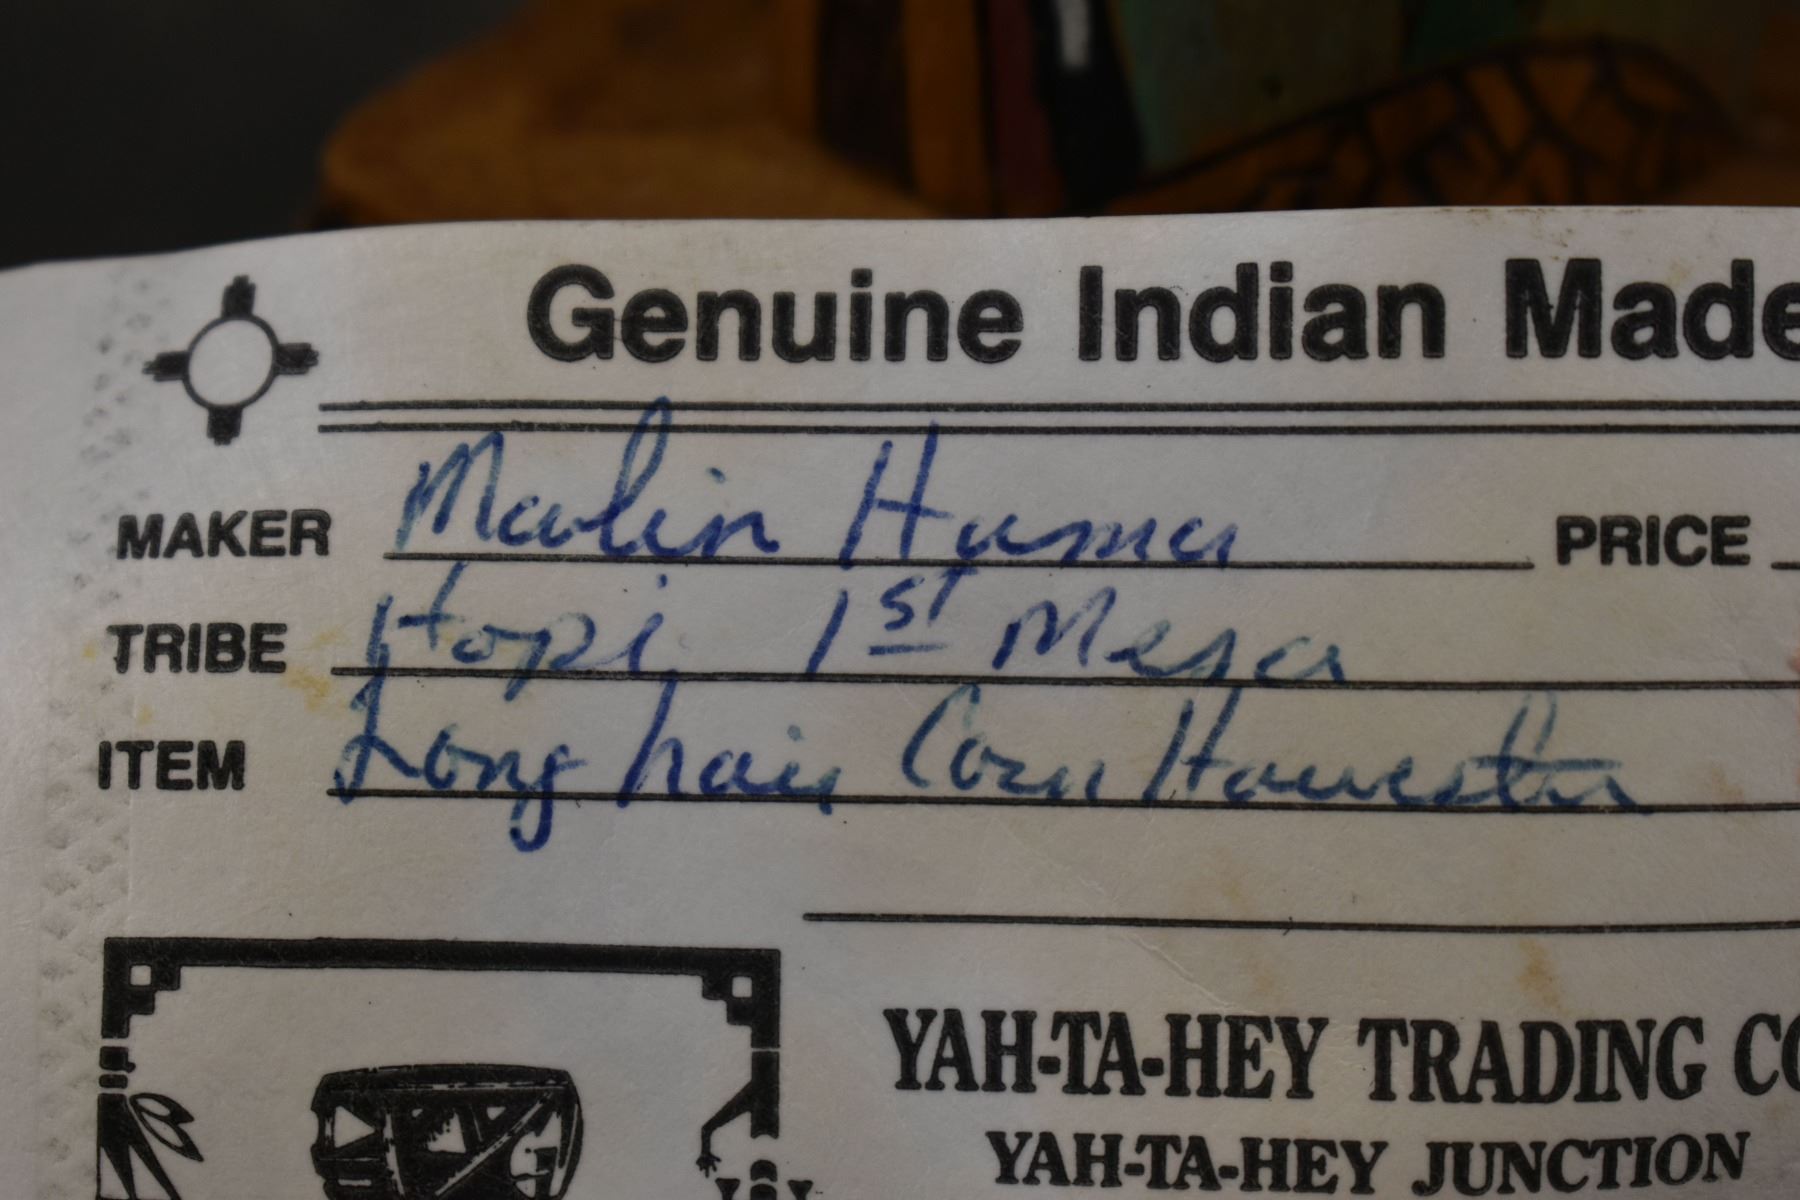 Genuine Indian Made
MAKER Marlin Huma PRICE
TRIBE Hopi 1st Mesa
ITEM Long hair Corn Harvester
YAH-TA-HEY TRADING CO
YAH-TA-HEY JUNCTION